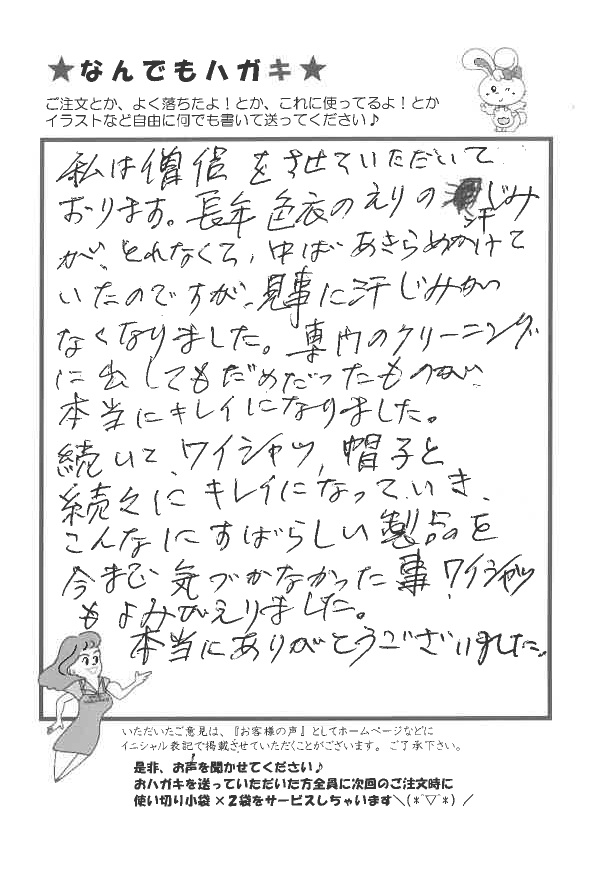 ★なんでもハガキ★
ご注文とか、よく落ちたよ！とか、これに使ってるよ！とか
イラストなど自由に何でも書いて送ってください♪
私は僧侶をさせていただいて
おります。長年色衣のえりの汗じみ
が、とれなくて、中ばあきらめかけて
いたのですが、見事に汗じみが
なくなりました。専門のクリーニング
に出してもだめだったものが
本当にキレイになりました。
続いて、ワイシャツ、帽子と
続々にキレイになっていき、
こんなにすばらしい製品を
今まで気づかなかった事、ワイシャツ
もよみがえりました。
本当にありがとうございました。
いただいたご意見は、『お客様の声』としてホームページなどに
イニシャル表記で掲載させていただくことがございます。ご了承下さい。
是非、お声を聞かせてください♪
おハガキを送っていただいた方全員に次回のご注文時に
使い切り小袋×2袋をサービスしちゃいます＼(*^▽^*)／